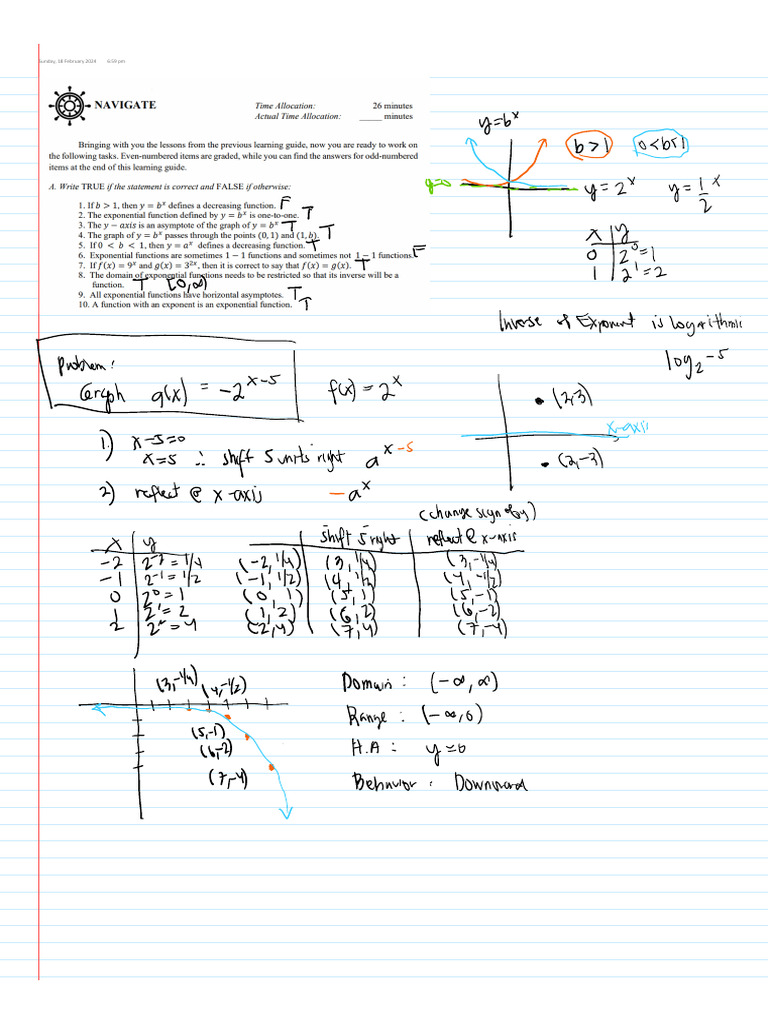 Sunday, 18 February 2024 6:59 pm
NAVIGATE
Time Allocation: 26 minutes
Actual Time Allocation: _____ minutes
Bringing with you the lessons from the previous learning guide, now you are ready to work on
the following tasks. Even-numbered items are graded, while you can find the answers for odd-numbered
items at the end of this learning guide.
A. Write TRUE if the statement is correct and FALSE if otherwise:
1. If b > 1, then y = bˣ defines a decreasing function. F
2. The exponential function defined by y = bˣ is one-to-one. T
3. The y − axis is an asymptote of the graph of y = bˣ T
4. The graph of y = bˣ passes through the points (0, 1) and (1, b). T
5. If 0 < b < 1, then y = aˣ defines a decreasing function. T
6. Exponential functions are sometimes 1 − 1 functions and sometimes not 1 − 1 functions. F
7. If f(x) = 9ˣ and g(x) = 3²ˣ, then it is correct to say that f(x) = g(x). T
8. The domain of exponential functions needs to be restricted so that its inverse will be a
function. T [0, ∞)
9. All exponential functions have horizontal asymptotes. T
10. A function with an exponent is an exponential function. T
y = bˣ
b > 1 0<b<1
y=0
y = 2ˣ y = 1/2 ˣ
x y
0 2⁰ = 1
1 2¹ = 2
Inverse of Exponent is logarithmic
log₂ -5
Problem:
Graph g(x) = -2ˣ⁻⁵
f(x) = 2ˣ
1.) x-5=0
x=5 ∴ shift 5 units right aˣ⁻⁵
2) reflect @ x-axis -aˣ
(2,3)
x-axis
(2,-3)
(change sign of y)
x y shift 5 right reflect @ x-axis
-2 2⁻² = 1/4 (-2, 1/4) (3, 1/4) (3, -1/4)
-1 2⁻¹ = 1/2 (-1, 1/2) (4, 1/2) (4, -1/2)
0 2⁰ = 1 (0, 1) (5, 1) (5, -1)
1 2¹ = 2 (1, 2) (6, 2) (6, -2)
2 2² = 4 (2, 4) (7, 4) (7, -4)
(3,-1/4) (4,-1/2)
(5,-1)
(6,-2)
(7,-4)
Domain: (-∞, ∞)
Range: (-∞, 0)
H.A: y=0
Behavior: Downward